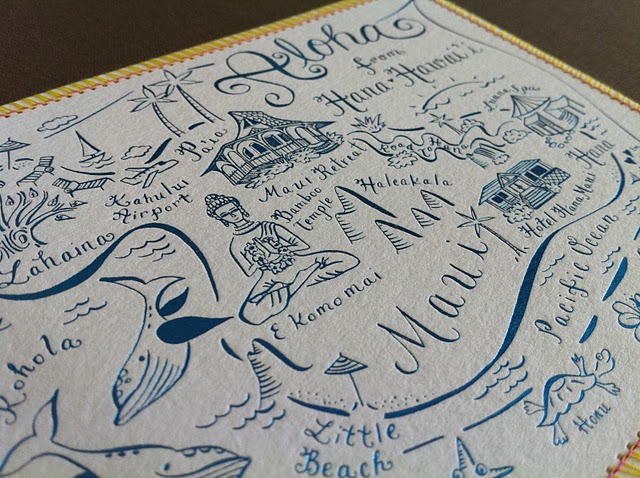 Aloha
from
Hana-Hawai'i
Paia
Kahului
Airport
Maui Retreat
Bamboo
Temple
Road to Hana
Haleakala
Hana
Hotel Hana Maui
Lahama
Maui
Pacific Ocean
E Komo mai
Kohola
Little
Beach
Honu